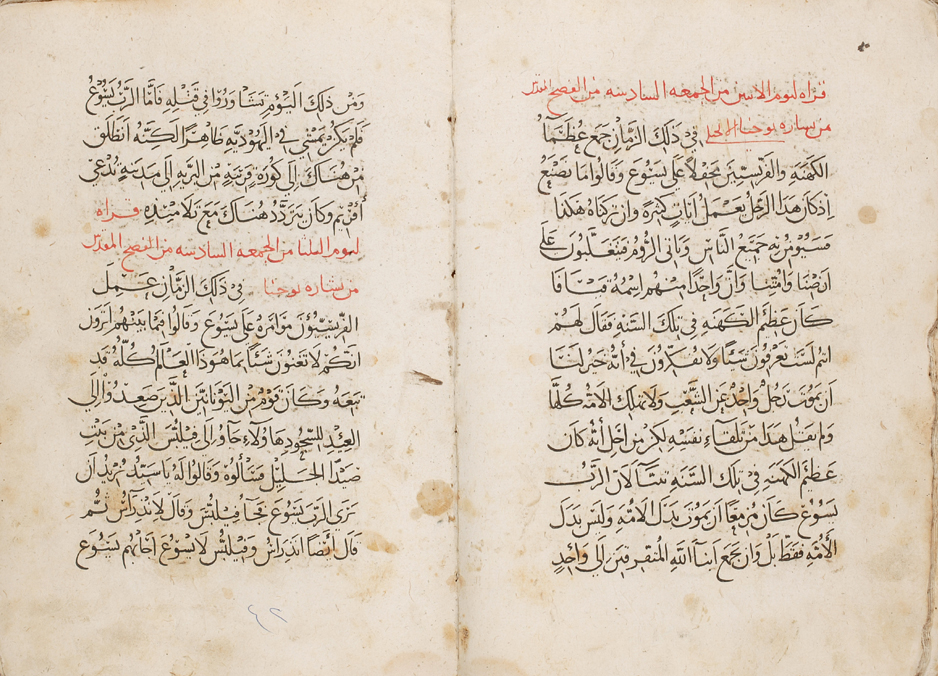 قراه ليوم الاثنين من الجمعه السادسه من الفصح المقدس
من بشاره يوحنا الانجيلي في ذلك الزمان جمع عظما
الكهنه والفريسيين محفلاً على يسوع وقالوا ما نصنع
اذ كان هذا الرجل يعمل ايات كثيره وان تركناه هكذا
فسيومن به جميع الناس وياتى الروم فيتغلبون على
ارضنا وامتنا وان واحدًا منهم اسمه قيافا
كان عظيم الكهنه في تلك السنه فقال لهم
انتم لستم تعرفون شيئًا ولا تفكرون في أنه خير لنا
ان يموت رجل واحد عن الشعب ولا تهلك الامه كلها
ولم يقل هذا من تلقاء نفسه لكن من اجل أنه كان
عظيم الكهنه في تلك السنه تنبّا لان الربّ
يسوع كان مزمعًا ان يموت بدل الامه وليس بدل
الأمه فقط بل وان يجمع ابنآ الله المتفرقين إلى واحدٍ
ومن ذلك اليوم تشاوروا في قتله فامّا الربّ يسوع
فلم يكن يمشي في اليهوديه ظاهرًا لكنه أنطلق
من هناك إلى كورة قريبه من البريه إلى مدينه تدعي
أفريم وكان يتردد هناك مع تلاميذه قراه
ليوم الثلثا من الجمعه السادسه من الفصح المقدس
من بشاره يوحنا في ذلك الزمان عمل
الفريسيّون موامره على يسوع وقالوا فيما بينهم اترون
انكم لا تغنون شئًا ما هوذا العالم كلّه قد
تبعه وكان قوم من اليونانيين الذين صعدوا إلى
العيد للسجود هاولاء جاوا إلى فيلبس الذي من بيت
صيدا الجليل فسألوه وقالوا له يا سيد نريد ان
نرى الرب يسوع فجا فيلبس وقال لاندراس ثم
قال أيضًا اندراس وفيلبس لايسوع اجابهم يسوع
٤٢